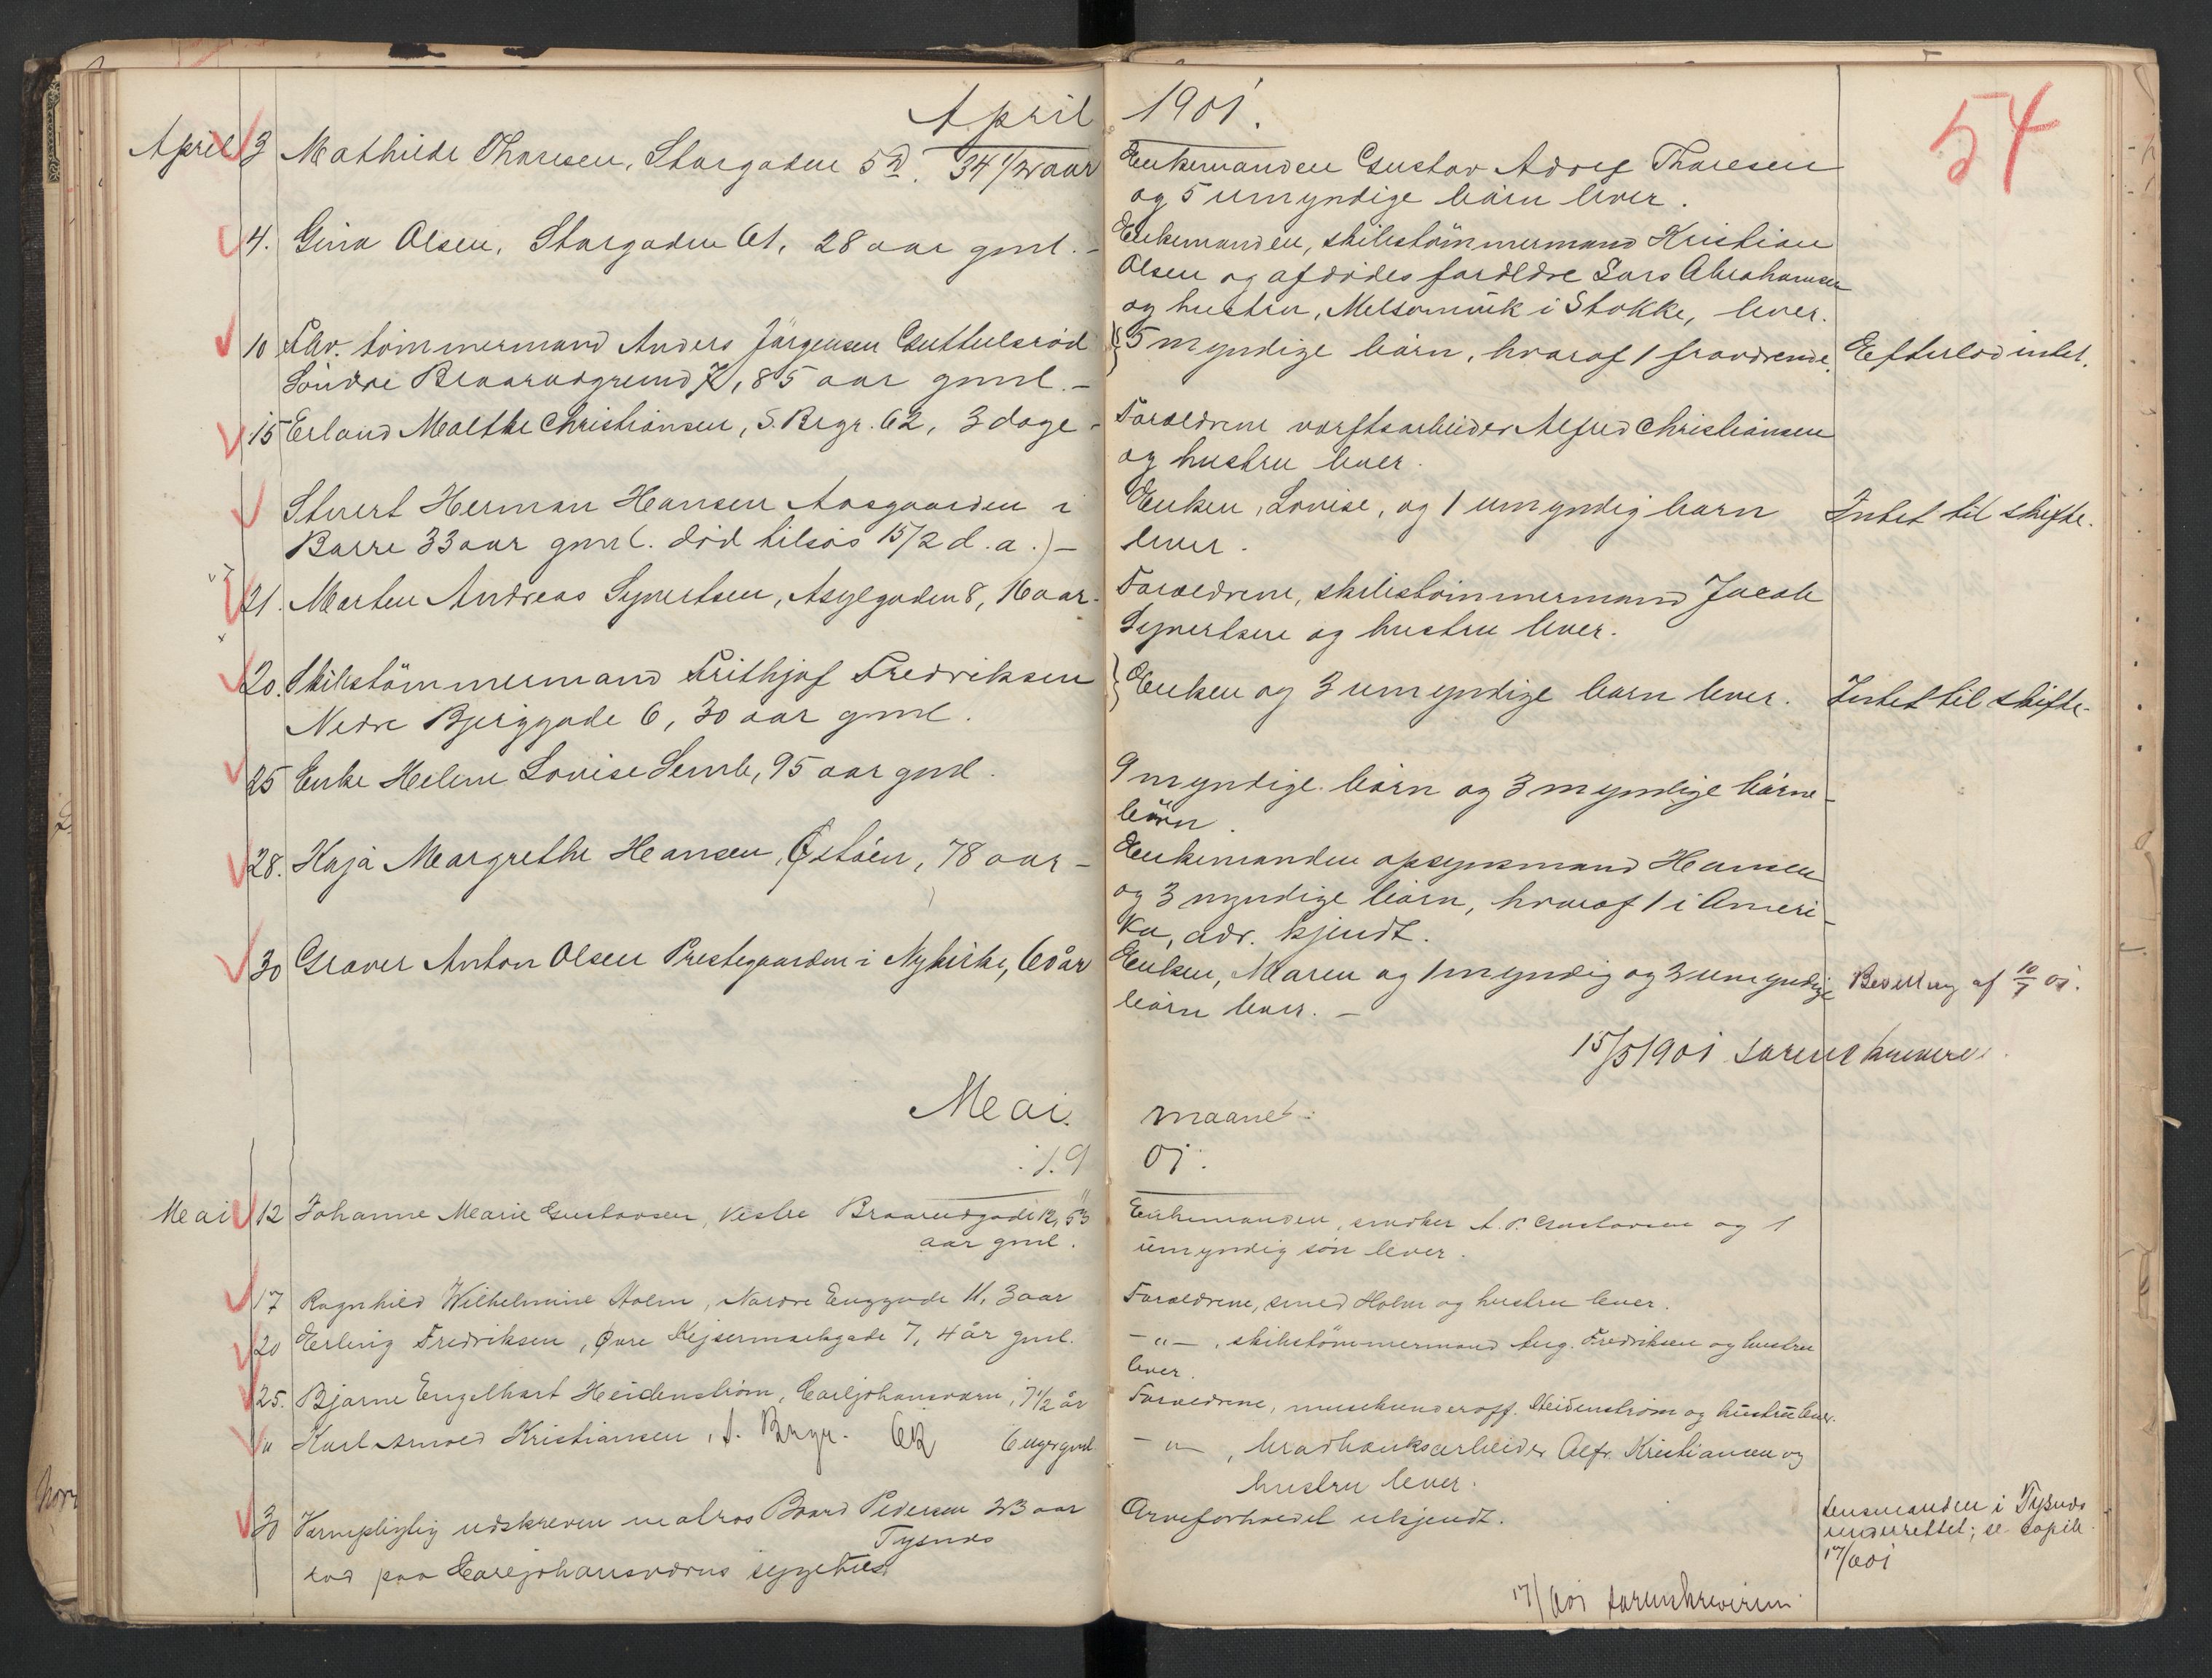 54
April 1901.
April 3 Mathilde Thoresen, Storgaden 5d. 34 1/2 aar
Enkemanden Gustav Adolf Thoresen
og 5 umyndige børn lever.
4. Gina Olsen, Storgaden 61, 28 aar gml. -
Enkemanden, skibstömmermand Kristian
Olsen og afdödes forældre Lars Abrahamsen
og hustru, Melsomvik i Stokke, lever.
10 Fhv. tömmermand Anders Jörgensen Gutulsröd
Söndre Braarudgrund 7, 85 aar gml. -
5 myndige börn, hvoraf 1 fraværende. Efterlod intet.
15 Erland Malthe Christiansen, S. Brgr. 62, 3 dage -
Forældrene værftsarbeider Alfred Christiansen
og hustru lever.
Stuert Herman Hansen Aasgaarden i
Borre 33 aar gml. död tilsös 15/2 d. a.) -
Enken, Lovise, og 1 umyndig barn Intet til skifte.
lever.
21. Morten Andreas Syvertsen, Asylgaden 8, 16 aar.
Forældrene, skibstömmermand Jacob
Syvertsen og hustru lever.
20. Skibstömmermand Frithjof Fredriksen
Nedre Bjerggade 6, 30 aar gml.
Enken og 3 umyndige barn lever. Intet til skifte.
25 Enke Helene Lovise Semb, 95 aar gml.
9 myndige börn og 3 myndige börne-
börn.
28. Kaja Margrethe Hansen, Östöen, 78 aar -
Enkemanden opsynsmand Hansen
og 3 myndige börn, hvoraf 1 i Ameri-
ka, adr. kjendt.
30 Graver Anton Olsen Prestegaarden i Nykirke, 60 år
Enken, Maren og 1 myndig og 3 umyndige Bevilling af 10/7 01.
börn lever. -
15/5 1901 sorenskriveren.
Mai maaned.
19 01.
Mai 12 Johanne Marie Gustavsen, Vestre Braarudgade 12, 53
aar gml.
Enkemanden, snedker A. P. Gustavsen og 1
umyndig sön lever.
17 Ragnhild Wilhelmine Holm, Nordre Enggade 11, 3 aar
Forældrene, smed Holm og hustru lever.
20 Erling Fredriksen, Övre Kejsermakgade 7, 4 år gml.
- " -, skibstömmermand Aug. Fredriksen og hustru
lever.
25. Bjarne Engelhart Heidenström, Carljohansværn, 7 1/2 år
Forældrene, maskunderoff. Heidenström og hustru lever.
" Karl Arnold Kristiansen, S. Brgr. 62 6 uger gml.
- " -, Alfr. Kristiansen og
hustru lever.
30 Værnepligtig udskreven matros Baard Pedersen 23 aar
Tysnes
död paa Carljohansværns sygehus
Arveforholdet ukjendt.
Lensmanden i Tysnes
underrettet; se kopib.
17/6 01
17/6 01 sorenskriveren